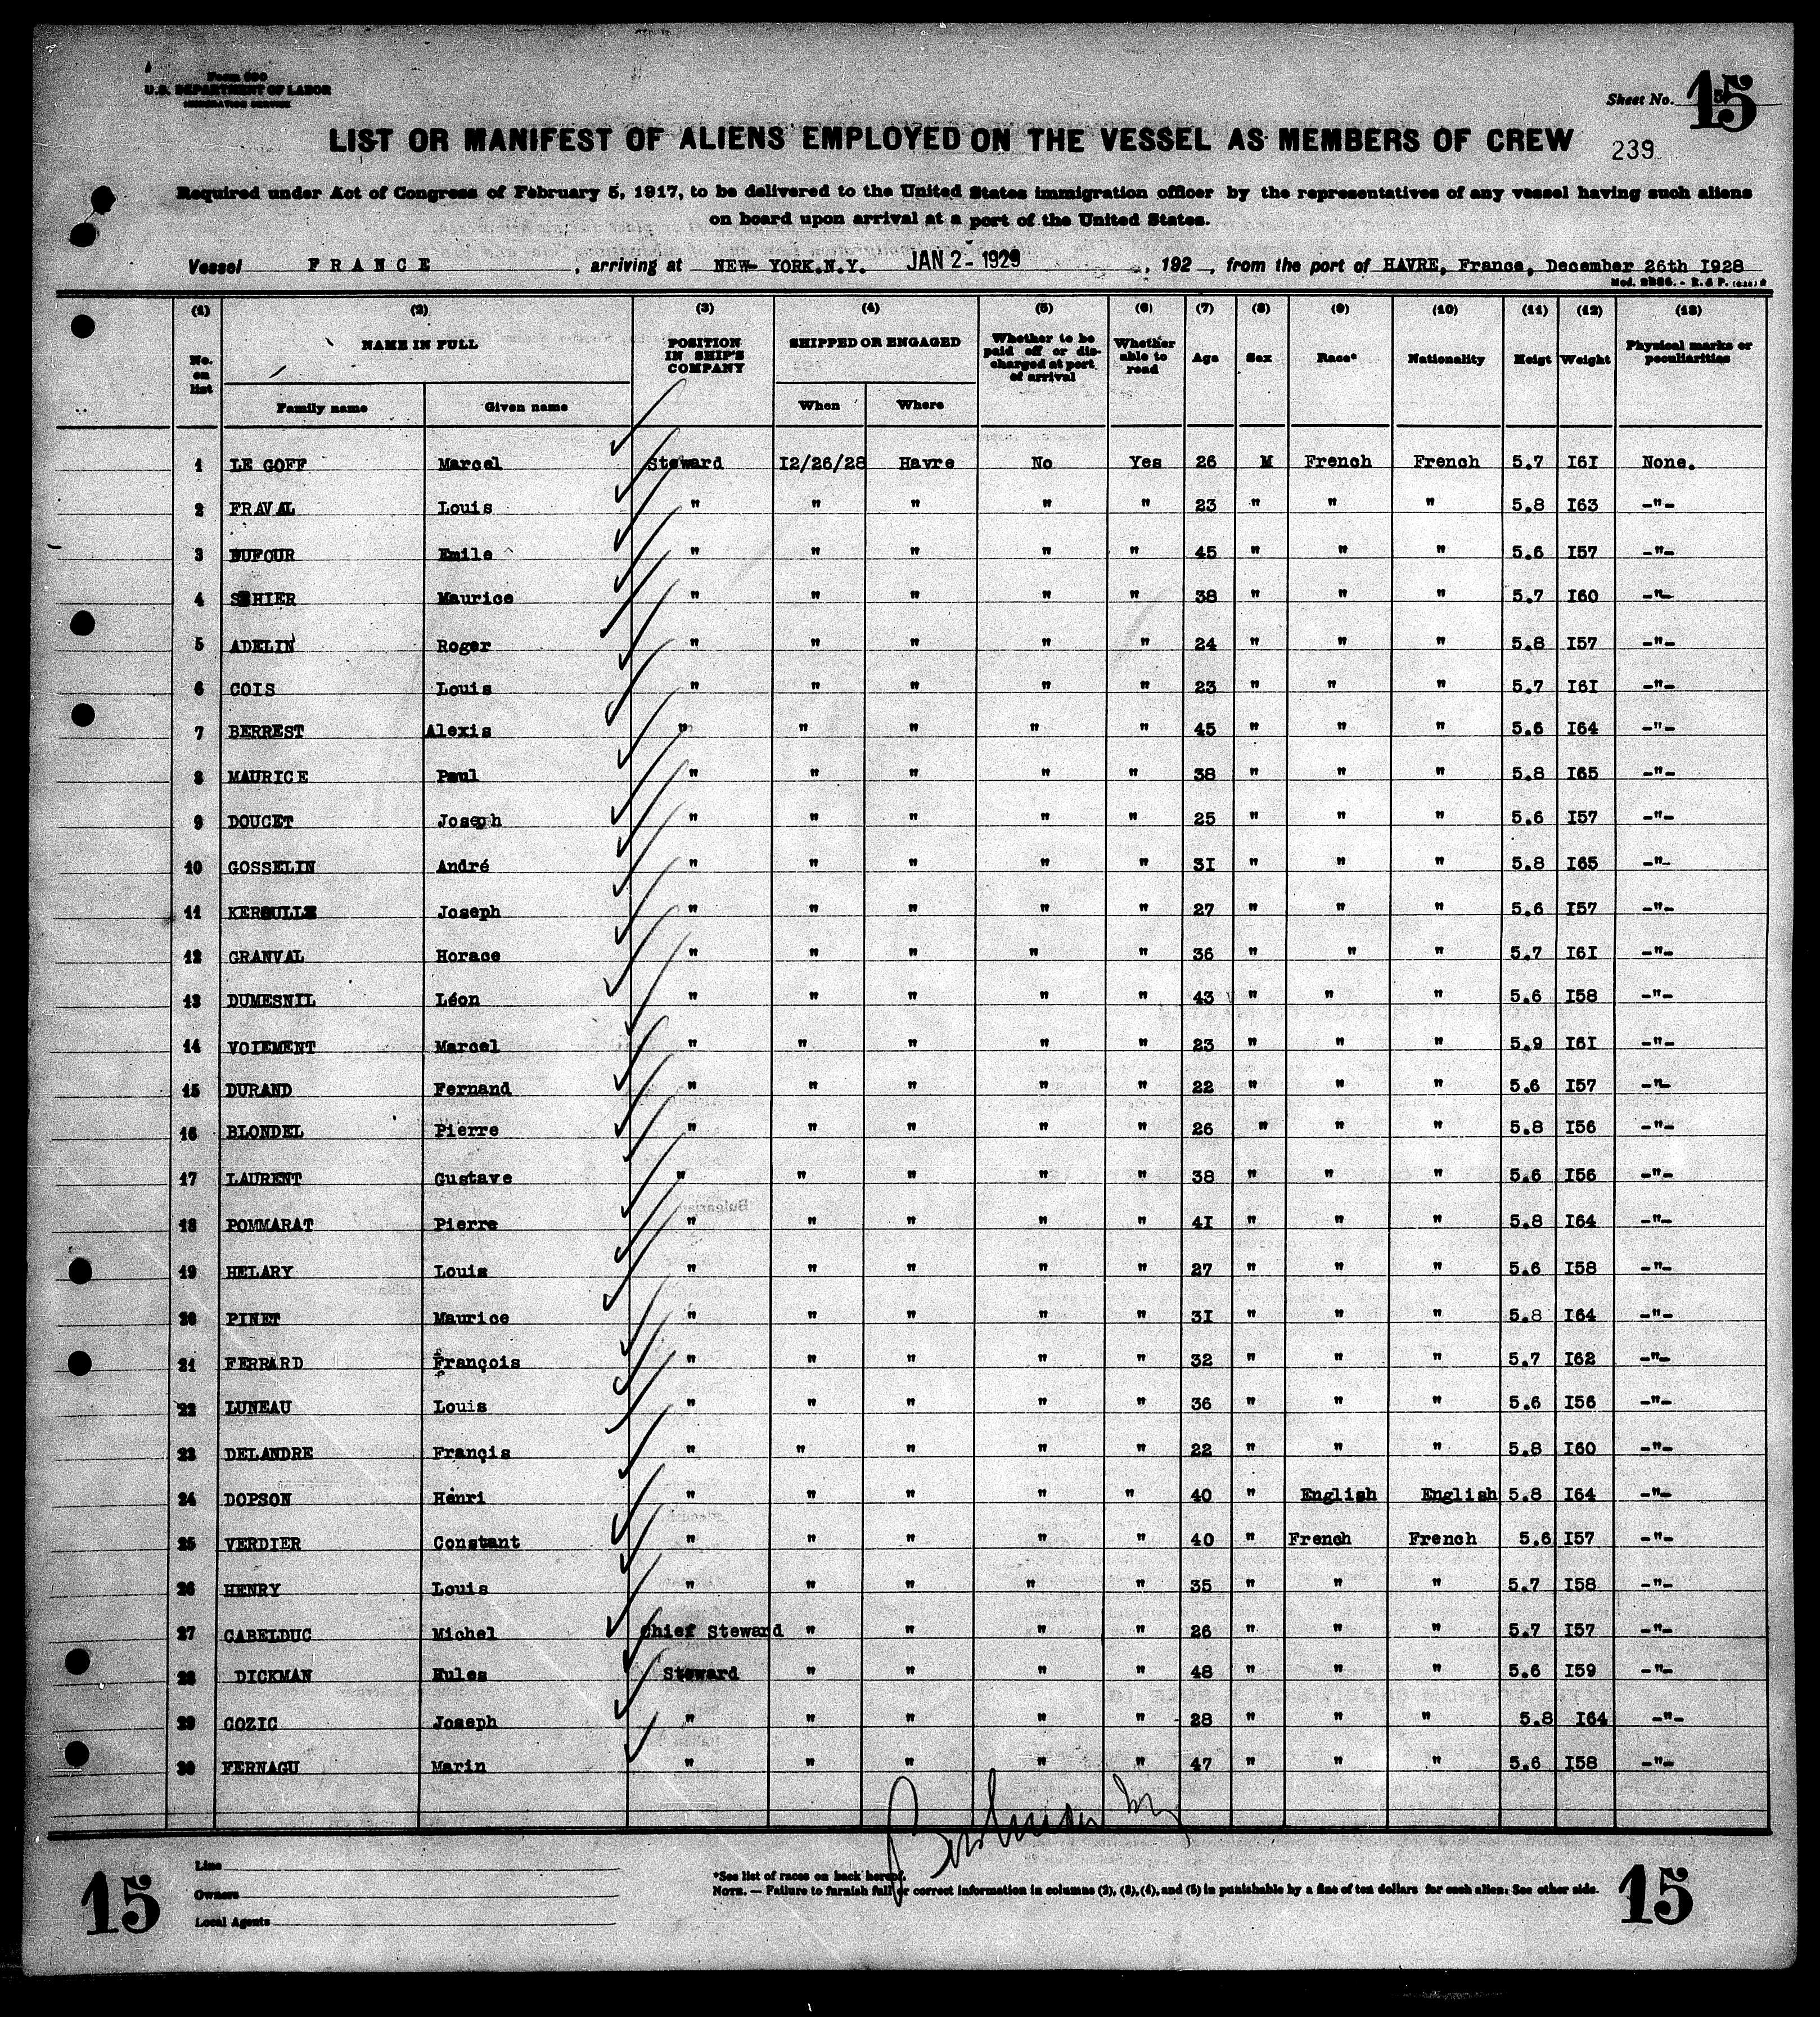 Form 680
U.S. DEPARTMENT OF LABOR
IMMIGRATION SERVICE
Sheet No. 15
LIST OR MANIFEST OF ALIENS EMPLOYED ON THE VESSEL AS MEMBERS OF CREW
239
Required under Act of Congress of February 5, 1917, to be delivered to the United States immigration officer by the representatives of any vessel having such aliens
on board upon arrival at a port of the United States.
Vessel FRANCE, arriving at NEW- YORK.N.Y. JAN 2- 1929, 192 , from the port of HAVRE, France, December 26th I928
(1) (2) (3) (4) (5) (6) (7) (8) (9) (10) (11) (12) (13)
No. on list NAME IN FULL Family name Given name POSITION IN SHIP'S COMPANY SHIPPED OR ENGAGED When Where Whether to be paid off or discharged at port of arrival Whether able to read Age Sex Race* Nationality Heigt Weight Physical marks or peculiarities
1 LE GOFF Marcel Steward I2/26/28 Havre No Yes 26 M French French 5.7 I6I None.
2 FRAVAL Louis " " " " " 23 " " " 5.8 I63 -"-
3 DUFOUR Emile " " " " " 45 " " " 5.6 I57 -"-
4 Maurice " " " " " 38 " " " 5.7 I60 -"-
5 ADELIN Roger " " " " " 24 " " " 5.8 I57 -"-
6 COIS Louis " " " " " 23 " " " 5.7 I6I -"-
7 BERREST Alexis " " " " " 45 " " " 5.6 I64 -"-
8 MAURICE Paul " " " " " 38 " " " 5.8 I65 -"-
9 DOUCET Joseph " " " " " 25 " " " 5.6 I57 -"-
10 GOSSELIN André " " " " " 3I " " " 5.8 I65 -"-
11 Joseph " " " " " 27 " " " 5.6 I57 -"-
12 GRANVAL Horace " " " " " 36 " " " 5.7 I6I -"-
13 DUMESNIL Léon " " " " " 43 " " " 5.6 I58 -"-
14 VOIEMENT Marcel " " " " " 23 " " " 5.9 I6I -"-
15 DURAND Fernand " " " " " 22 " " " 5.6 I57 -"-
16 BLONDEL Pierre " " " " " 26 " " " 5.8 I56 -"-
17 LAURENT Gustave " " " " " 38 " " " 5.6 I56 -"-
18 POMMARAT Pierre " " " " " 4I " " " 5.8 I64 -"-
19 HELARY Louis " " " " " 27 " " " 5.6 I58 -"-
20 PINET Maurice " " " " " 3I " " " 5.8 I64 -"-
21 FERRARD François " " " " " 32 " " " 5.7 I62 -"-
22 LUNEAU Louis " " " " " 36 " " " 5.6 I56 -"-
23 DELANDRE Françis " " " " " 22 " " " 5.8 I60 -"-
24 DOPSON Henri " " " " " 40 " English English 5.8 I64 -"-
25 VERDIER Constant " " " " " 40 " French French 5.6 I57 -"-
26 HENRY Louis " " " " " 35 " " " 5.7 I58 -"-
27 CABELDUC Michel Chief Steward " " " " 26 " " " 5.7 I57 -"-
28 DICKMAN Steward " " " " 48 " " " 5.6 I59 -"-
29 COZIC Joseph " " " " " 28 " " " 5.8 I64 -"-
30 FERNAGU Marin " " " " " 47 " " " 5.6 I58 -"-
15
Line
Owners
Local Agents
*See list of races on back hereof.
NOTE. — Failure to furnish full or correct information in columns (2), (3), (4), and (5) in punishable by a fine of ten dollars for each alien: See other side.
15